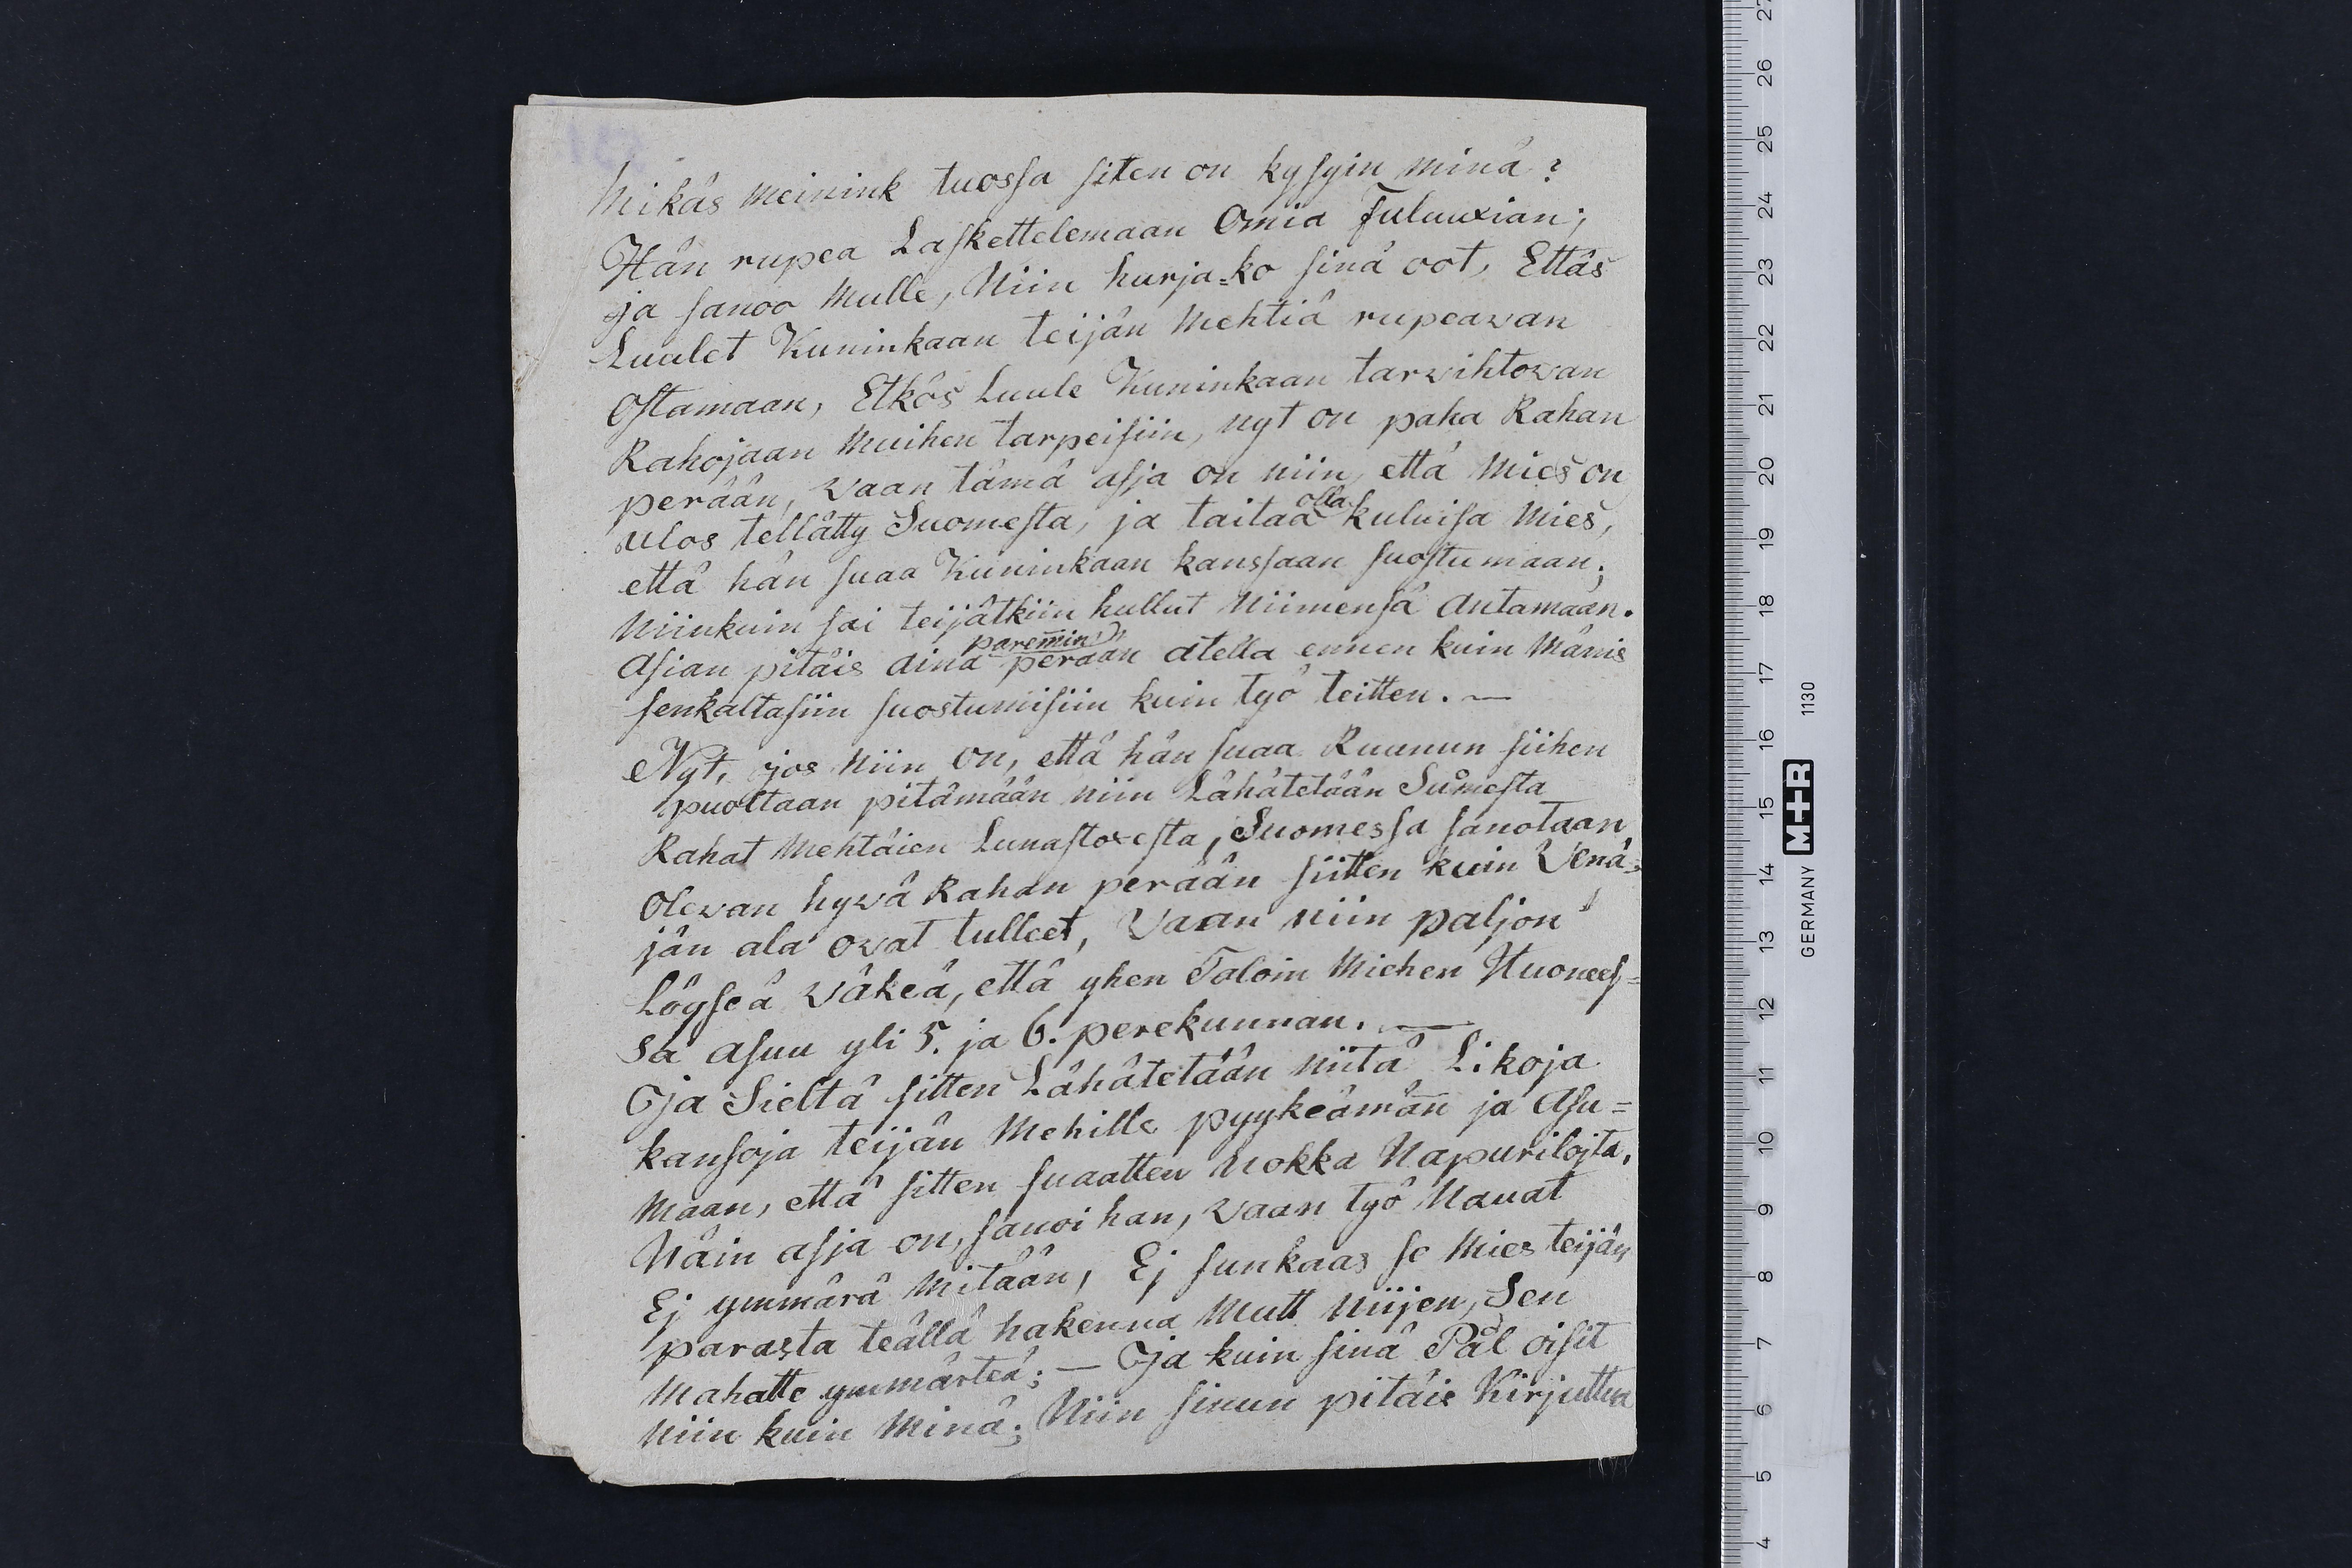 Mikäs meinink tuossa siten on kysyin minä?
Hän rupea Laskettelemaan Omia Juluuxian;
ja sanoo Mulle, Niin hurja=ko sinä oot, Ettäs
Luulet Kuninkaan teijän Mehtiä rupeavan
Ostamaan, Etkös Luule Kuninkaan tarvihtovan
Rahojaan Muihen tarpeisiin, nyt on paha Rahan
perään, vaan tämä asja on niin, että Mies on
ulos tellätty Suomesta, ja taitaa olla kuluisa Mies,
että hän suaa Kuninkaan kanssaan suostumaan;
Niinkuin sai teijätkiin hullut Niimensä Antamaan.
Asian pitäis aina paremin perään atella ennen kuin Mänis
senkaltasiin suostumisiin kuin työ teitten. —
Nyt, jos Niin on, että hän suaa Ruunun siihen
puoltaan pitämään niin Lähätetään Suomesta
Rahat Mehtäien Lunastoxesta, Suomessa sanotaan
Olevan hyvä Rahan perään siitten kuin Venä=
jän ala ovat tulleet, Vaan niin paljon
Löyseä Väkeä, että yhen Taloin Miehen Huonees=
sa asuu yli 5. ja 6. perekunnan. —
Ja Sieltä sitten Lähätetään niitä Likoja
kansoja teijän Mehille pyykeämän ja Asu=
Maan, että sitten suaatten Nokka Napurilojta,
Näin asja on, sanoi han, vaan työ Nauat
Ej ymmärä Mitään, Ej sunkaas se Mies teijän
parasta teällä hakenna Mutt Niijen, Sen
Mahatte ymmärteä; — Ja kuin sinä Pål oisit
Niin kuin Minä; Niin sinun pitäis Kirjuttua
27
26
25
24
23
22
21
20
19
18
17
16
15
14
13
12
11
10
9
8
7
6
5
4
GERMANY M+R 1130